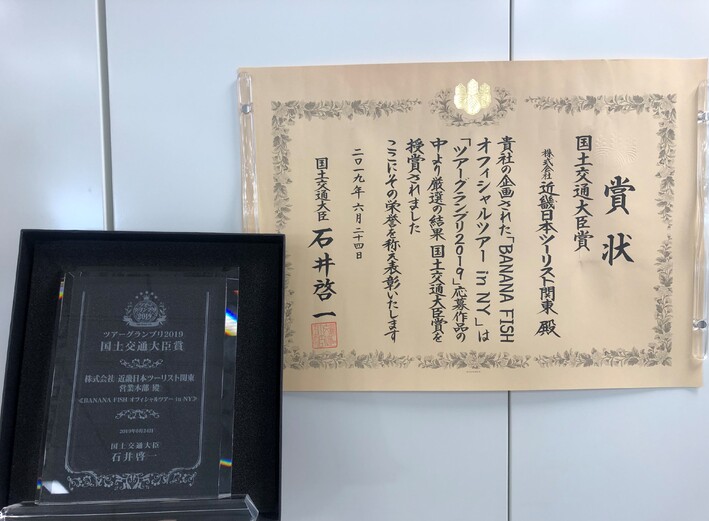 賞状
国土交通大臣賞
株式会社 近畿日本ツーリスト関東 殿
貴社の企画された「BANANA FISH
オフィシャルツアー in NY」は
「ツアーグランプリ2019」応募作品の
中より厳選の結果 国土交通大臣賞を
授賞されました
ここにその栄誉を称え表彰いたします
二〇一九年 六月 二十四日
国土交通大臣 石井啓一
2019
ツアーグランプリ2019
国土交通大臣賞
株式会社 近畿日本ツーリスト関東
営業本部 殿
<BANANA FISH オフィシャルツアー in NY>
2019年6月24日
国土交通大臣
石井啓一